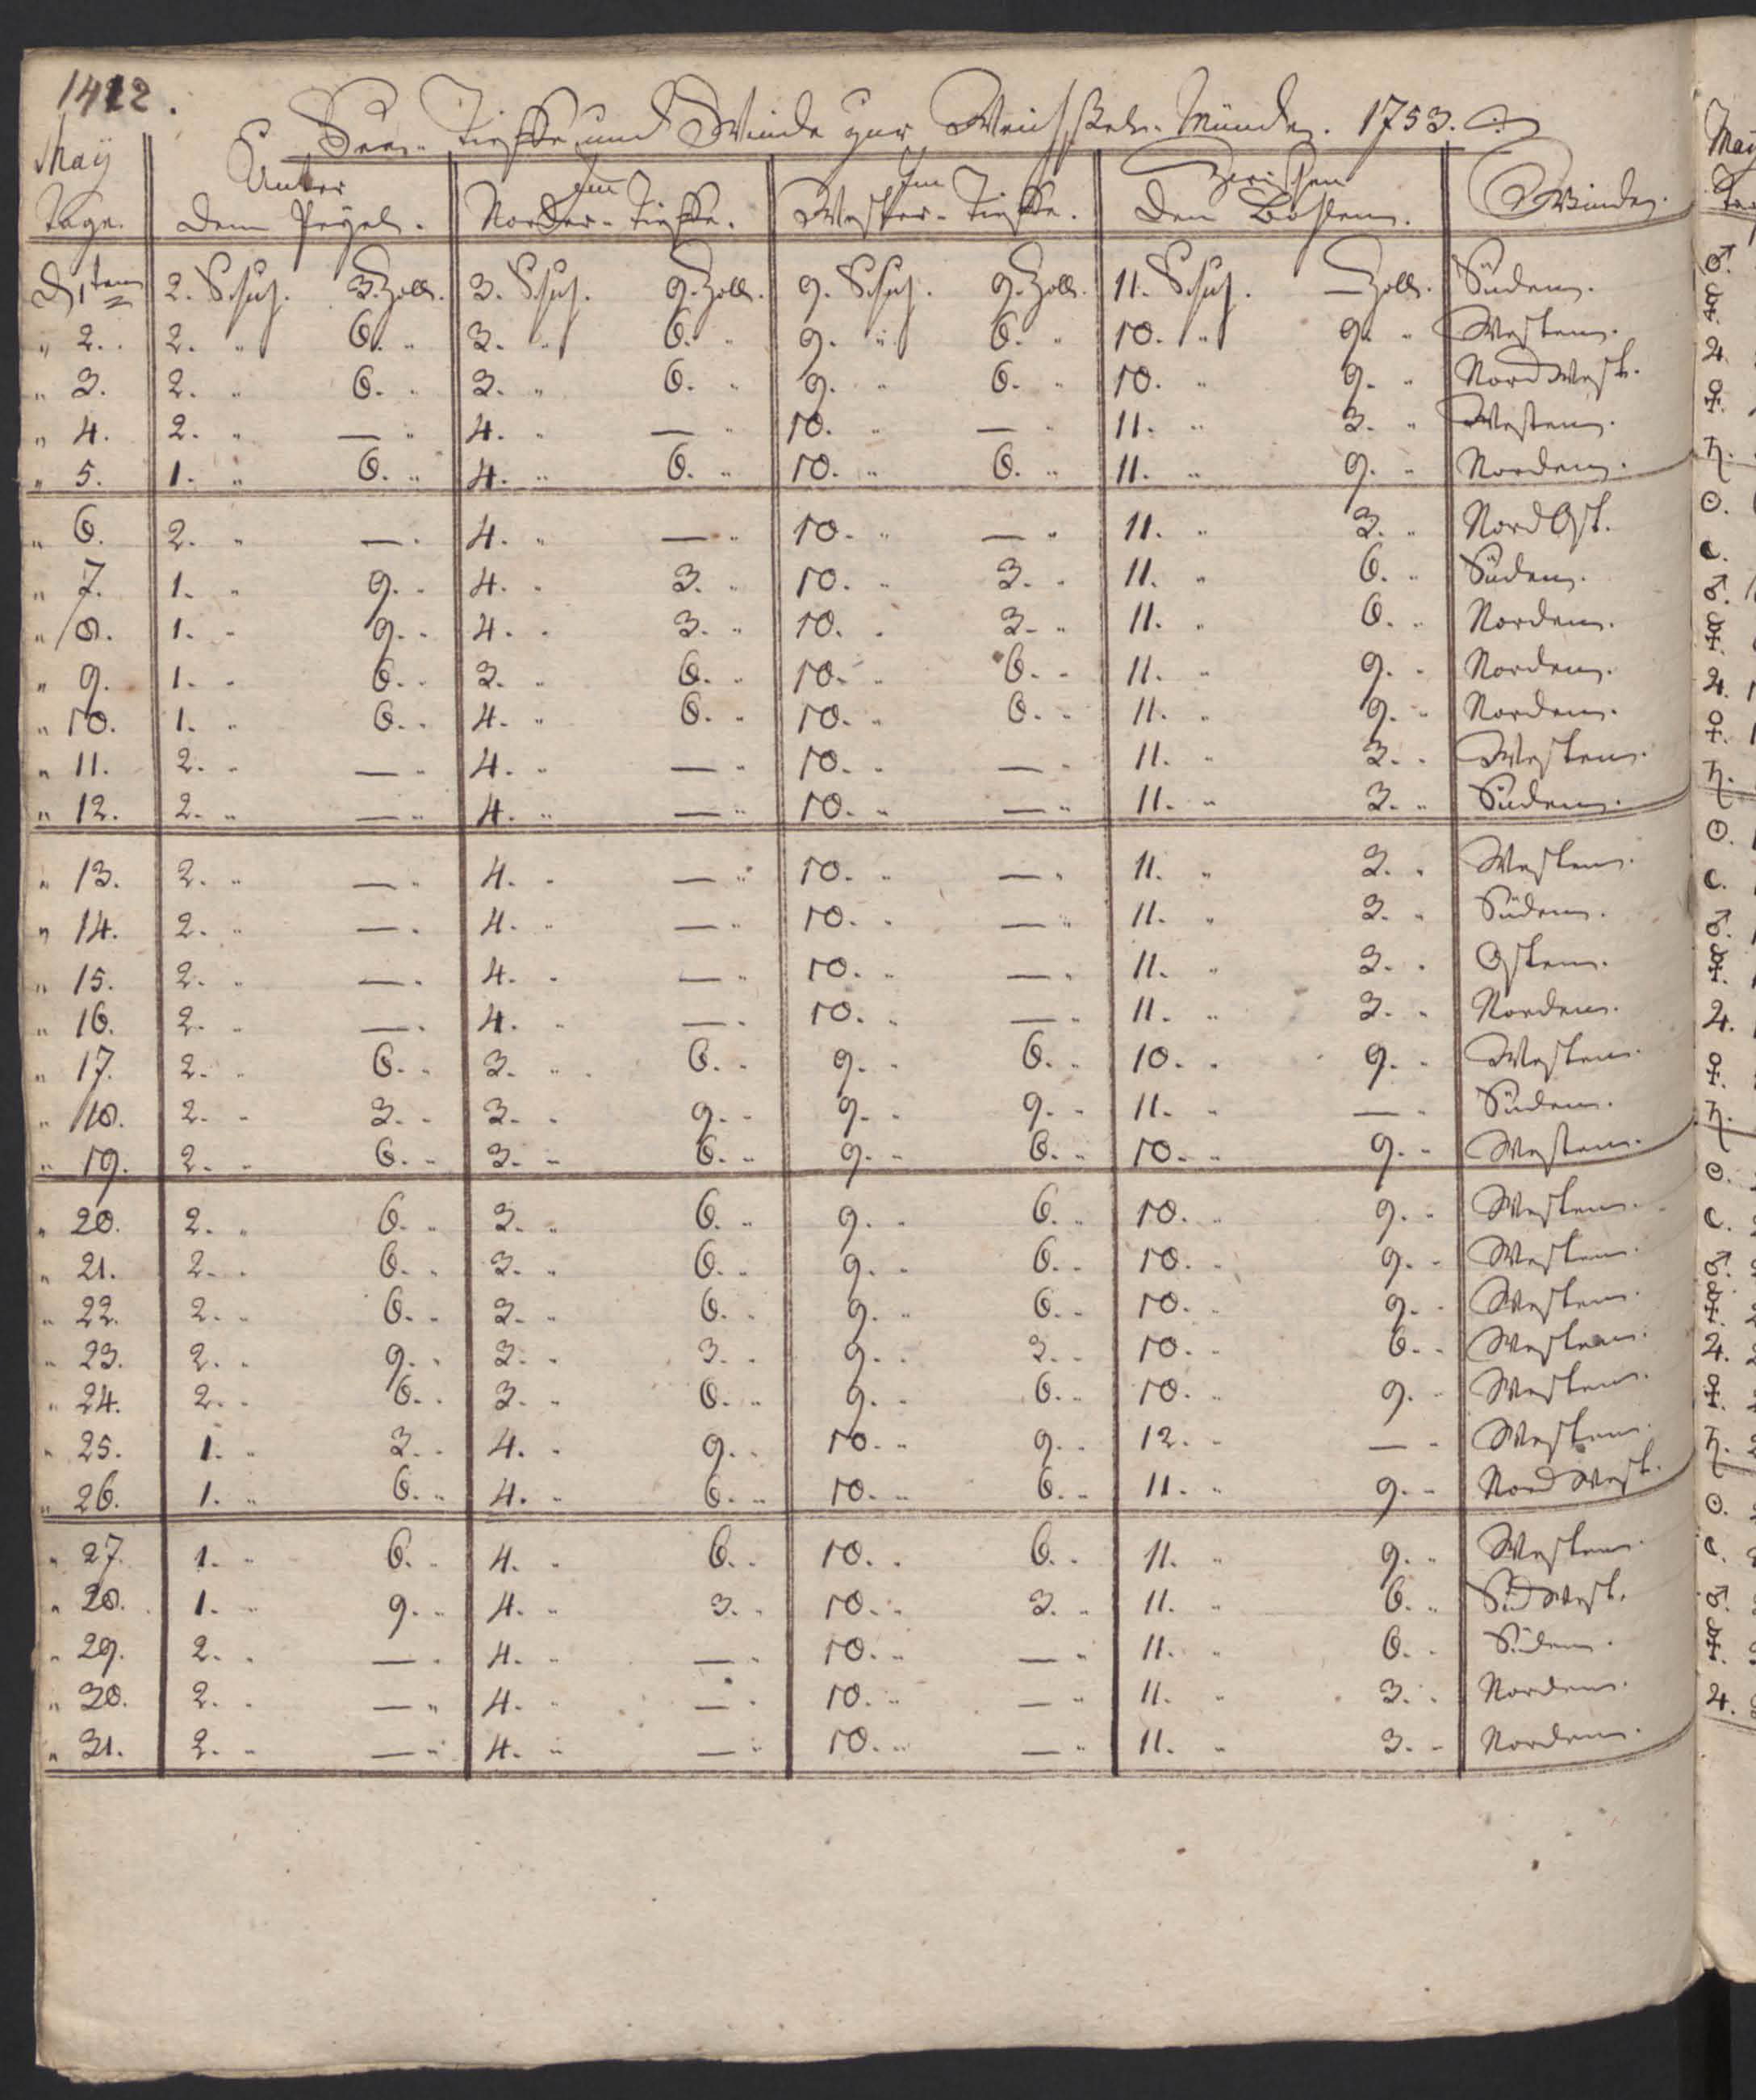 1412.
See-Tieffe und Winde zur Weichßel-Münde. 1753.
May Tage. Unter dem Pegel. Im Norder-Tieffe. Im Wester-Tieffe. Zwischen den Bohlen. Winde.
D. 1ten 2. Schuh. 3. Zoll. 3. Schuh. 9. Zoll. 9. Schuh. 9. Zoll. 11. Schuh. — Zoll. Süden.
" 2. 2. " 6. " 3. " 6. " 9. " 6. " 10. " 9. " Westen.
" 3. 2. " 6. " 3. " 6. " 9. " 6. " 10. " 9. " NordWest.
" 4. 2. " — " 4. " — " 10. " — " 11. " 3. " Westen.
" 5. 1. " 6. " 4. " 6. " 10. " 6. " 11. " 9. " Norden.
" 6. 2. " — " 4. " — " 10. " — " 11. " 3. " NordOst.
" 7. 1. " 9. " 4. " 3. " 10. " 3. " 11. " 6. " Süden.
" 8. 1. " 9. " 4. " 3. " 10. " 3. " 11. " 6. " Norden.
" 9. 1. " 6. " 3. " 6. " 10. " 6. " 11. " 9. " Norden.
" 10. 1. " 6. " 4. " 6. " 10. " 6. " 11. " 9. " Norden.
" 11. 2. " — " 4. " — " 10. " — " 11. " 3. " Westen.
" 12. 2. " — " 4. " — " 10. " — " 11. " 3. " Süden.
" 13. 2. " — " 4. " — " 10. " — " 11. " 3. " Westen.
" 14. 2. " — " 4. " — " 10. " — " 11. " 3. " Süden.
" 15. 2. " — " 4. " — " 10. " — " 11. " 3. " Osten.
" 16. 2. " — " 4. " — " 10. " — " 11. " 3. " Norden.
" 17. 2. " 6. " 3. " 6. " 9. " 6. " 10. " 9. " Westen.
" 18. 2. " 3. " 3. " 9. " 9. " 9. " 11. " — " Süden.
" 19. 2. " 6. " 3. " 6. " 9. " 6. " 10. " 9. " Westen.
" 20. 2. " 6. " 3. " 6. " 9. " 6. " 10. " 9. " Westen.
" 21. 2. " 6. " 3. " 6. " 9. " 6. " 10. " 9. " Westen.
" 22. 2. " 6. " 3. " 6. " 9. " 6. " 10. " 9. " Westen.
" 23. 2. " 9. " 3. " 3. " 9. " 3. " 10. " 6. " Westen.
" 24. 2. " 6. " 3. " 6. " 9. " 6. " 10. " 9. " Westen.
" 25. 1. " 3. " 4. " 9. " 10. " 9. " 12. " — " Westen.
" 26. 1. " 6. " 4. " 6. " 10. " 6. " 11. " 9. " NordWest.
" 27. 1. " 6. " 4. " 6. " 10. " 6. " 11. " 9. " Westen.
" 28. 1. " 9. " 4. " 3. " 10. " 3. " 11. " 6. " SüdWest.
" 29. 2. " — " 4. " — " 10. " — " 11. " 6. " Süden.
" 30. 2. " — " 4. " — " 10. " — " 11. " 3. " Norden.
" 31. 2. " — " 4. " — " 10. " — " 11. " 3. " Norden.